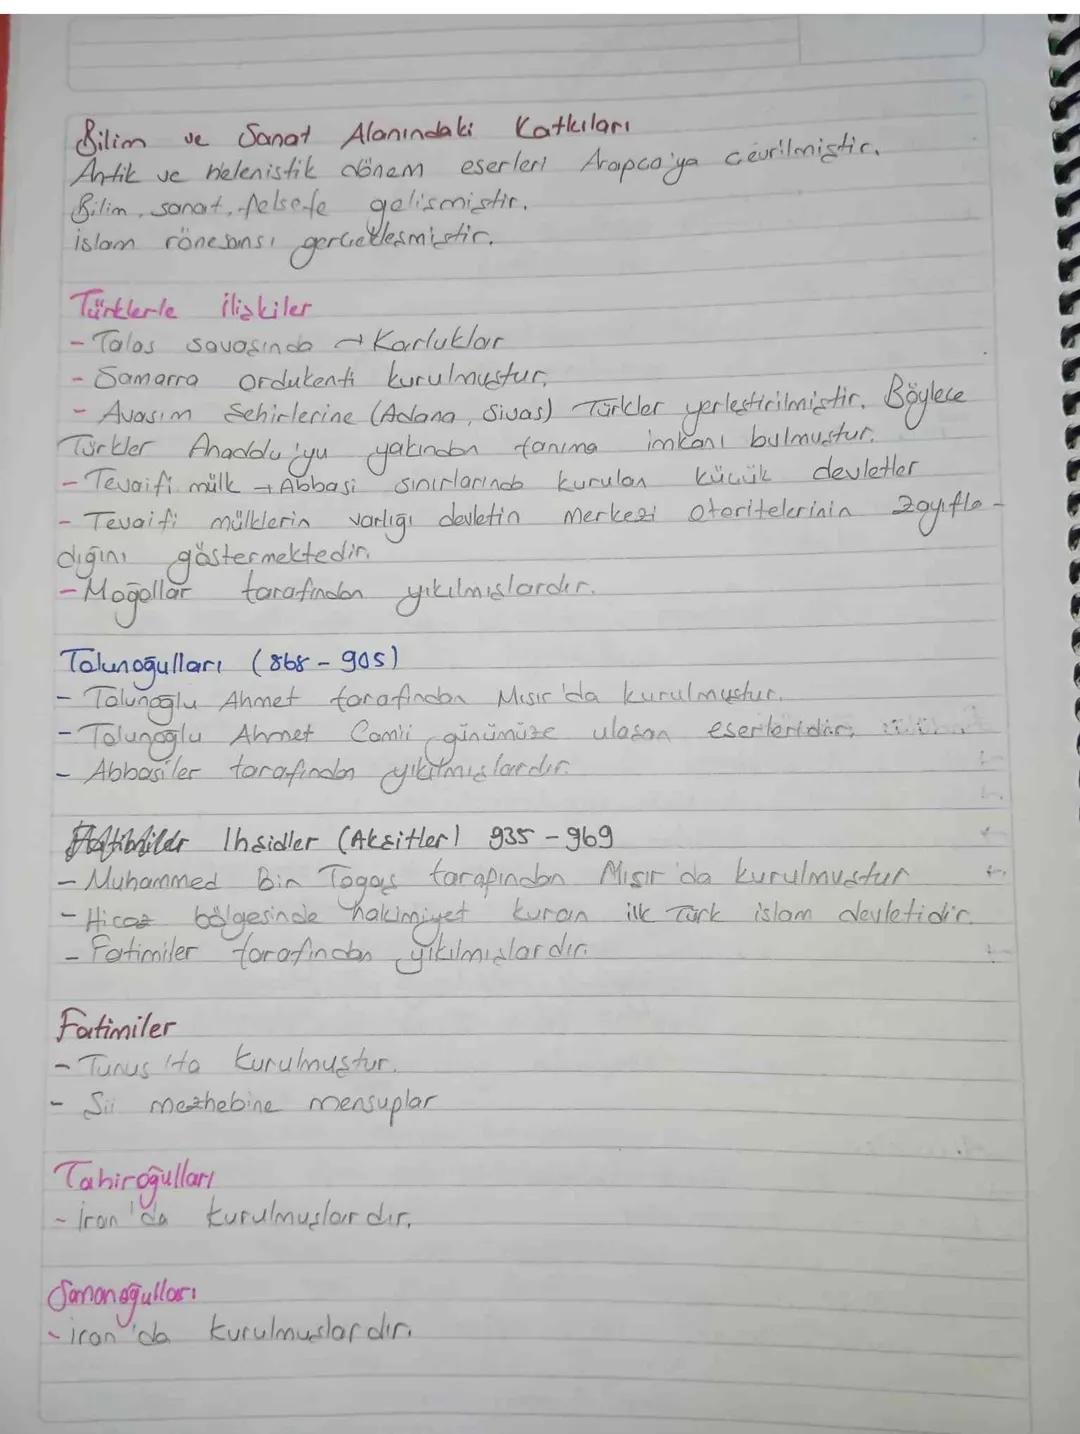 Bilim ve Sanat Alanındaki Katkıları
Antik ve Helenistik dönem eserleri Arapca'ya cevrilmiştir.
Bilim, sanat, felsefe gelişmiştir.
islam rönesansı gercekleşmiştir.
Türklerle ilişkiler
- Talas savaşında → Karluklar
- Samarra ordukenti kurulmuştur.
- Avasım Şehirlerine (Adana, Sivas) Türkler yerleştirilmiştir. Böylece
Türkler Anadolu'yu yakından tanıma imkanı bulmuştur.
- Tevaifi mülk → Abbasi sınırlarında kurulan kücük devletler
- Tevaifi mülklerin varlığı devletin merkezi otoritelerinin zayıfla-
dığını göstermektedir.
- Moğollar tarafından yıkılmışlardır.
Tolunoğulları (868 - 905)
- Tolunoğlu Ahmet tarafından Mısır'da kurulmuştur.
- Tolunoğlu Ahmet Camii günümüze ulaşan eserleridir.
- Abbasiler tarafından yıkılmışlardır.
Ihşidler (Akşitler) 935 - 969
- Muhammed Bin Togaç tarafından Mısır'da kurulmuştur
- Hicaz bölgesinde hakimiyet kuran ilk Türk islam devletidir.
- Fatimiler tarafından yıkılmışlardır.
Fatimiler
- Tunus'ta kurulmuştur.
- Şii mezhebine mensuplar
Tahiroğulları
- İran'da kurulmuşlardır.
Samanoğulları
- iran'da kurulmuşlardır.